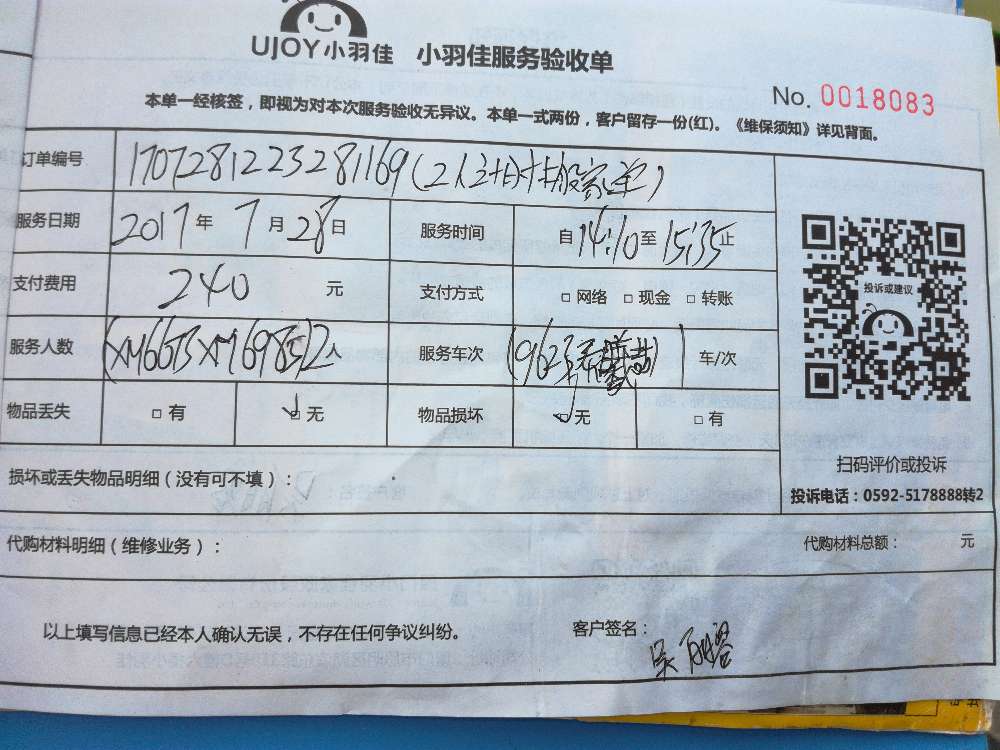 UJOY小羽佳 小羽佳服务验收单
No. 0018083
本单一经核签，即视为对本次服务验收无异议。本单一式两份，客户留存一份(红)。《维保须知》详见背面。
订单编号 170728122328 1169 (2人计时
服务日期 2017年7月28日 服务时间 自14:10至15:35止
支付费用 240 元 支付方式 □ 网络 □ 现金 □ 转账
服务人数 2人 服务车次 车/次
物品丢失 □ 有 □ 无 物品损坏 □ 无 □ 有
投诉或建议
扫码评价或投诉
投诉电话：0592-5178888转2
损坏或丢失物品明细（没有可不填）：
代购材料明细（维修业务）： 代购材料总额： 元
以上填写信息已经本人确认无误，不存在任何争议纠纷。 客户签名：吴